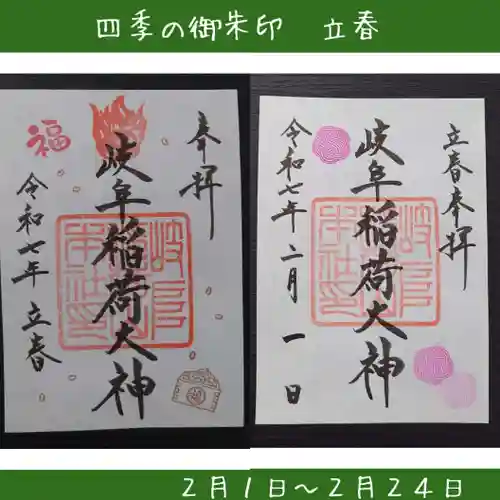 四季の御朱印　立春
奉拝
岐阜稲荷大神
令和七年　立春
福
立春奉拝
岐阜稲荷大神
令和七年二月一日
2月1日～2月24日